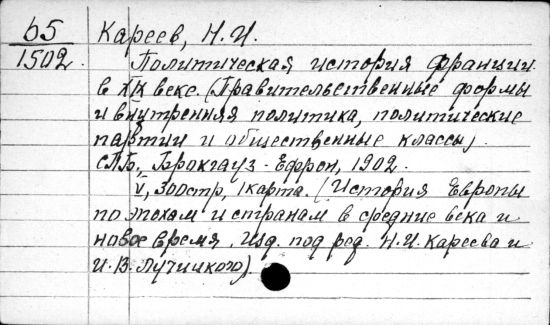 b5
1502.
Кареев, Н. И.
Политическая история франции
в XIX веке. (Правительственные формы
и внутренняя политика, политические
партии и общественные классы)
СПБ., Брокгауз-Ефрон, 1902.
V, 300стр, 1карта. (История Европы
по эпохам и странам в средние века и
новое время. Изд. под ред. Н.И. Кареева и
И.В. Лучицкого)